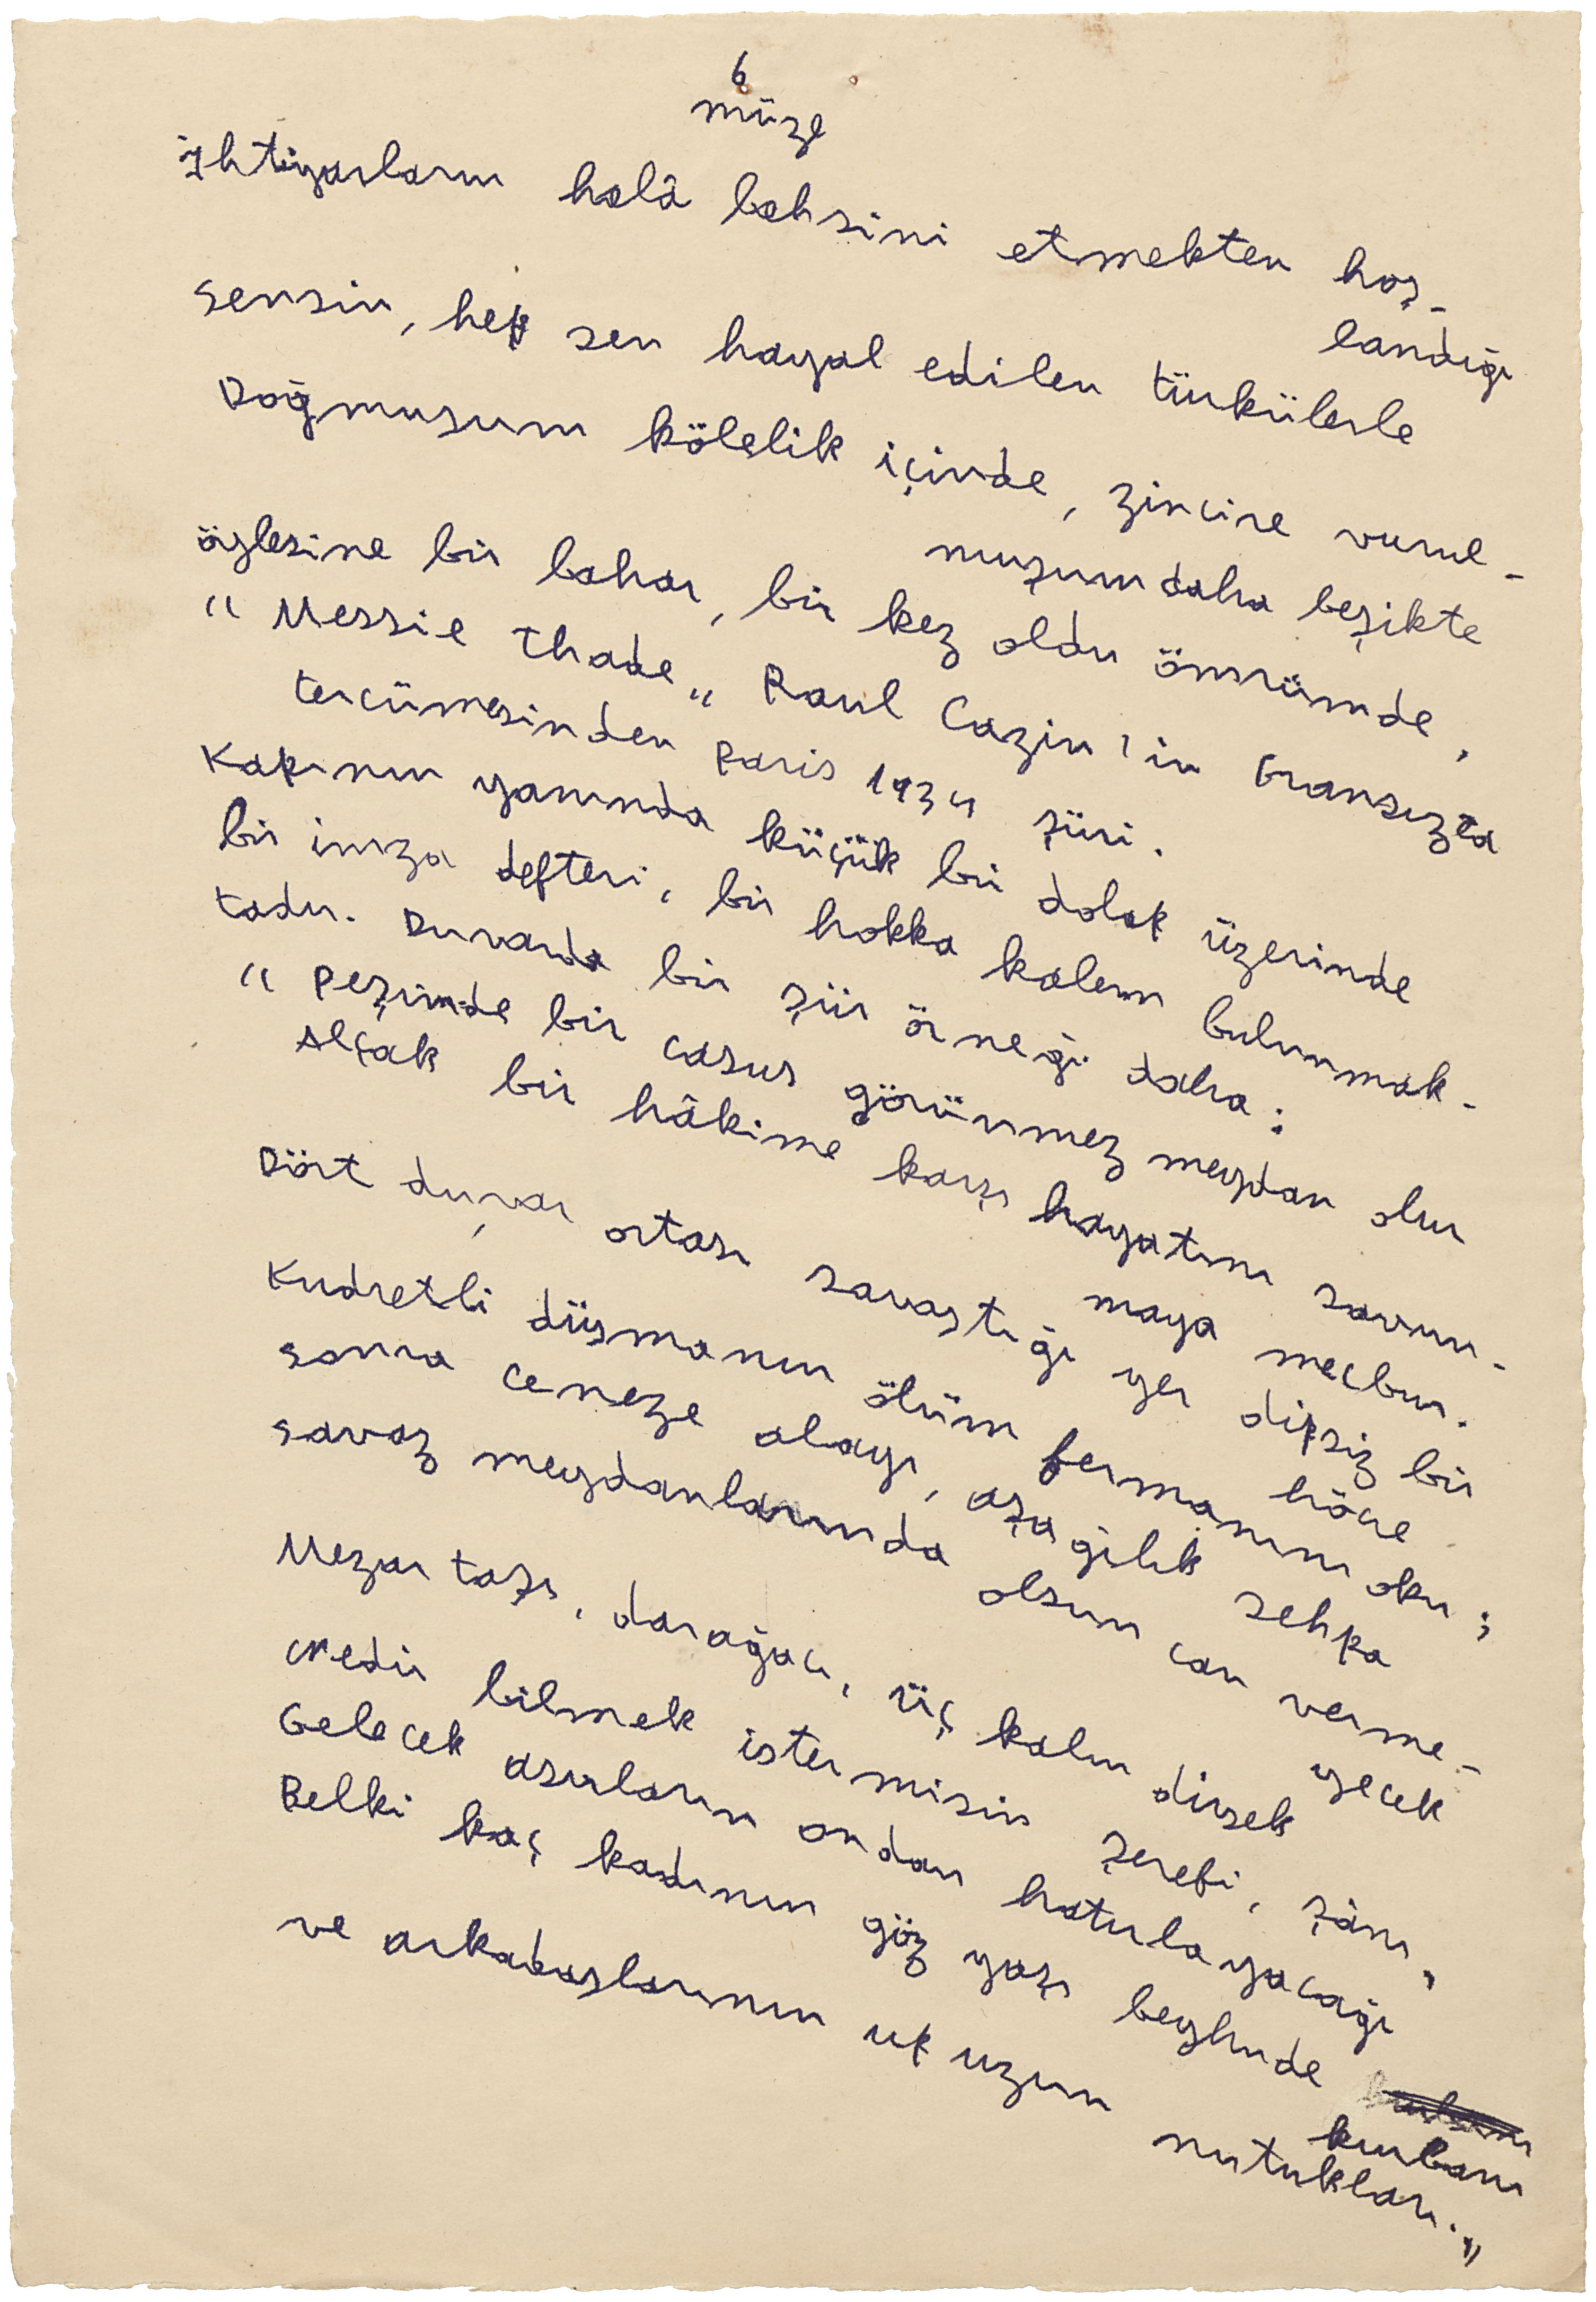 6
müze
İhtiyarların halâ bahsini etmekten hoş-
landığı
sensin, hep sen hayal edilen türkülerle
Doğmuşum kölelik içinde, zincire vurul-
muşum daha beşikte
öylesine bir bahar, bir kez oldu ömrümde.
"Messie Thade" Paul Cazin'in Fransızca
tercümesinden Paris 1934 şiiri.
Kapının yanında küçük bir dolap üzerinde
bir imza defteri, bir hokka kalem bulunmak-
tadır. Duvarda bir şiir örneği daha:
"Peşimde bir casus görünmez meydan olur
Alçak bir hâkime karşı hayatını savun-
maya mecbur.
Dört duvar ortası savaştığı yer dipsiz bir
hücre
Kudretli düşmanın ölüm fermanını oku;
sonra ceneze alayı, aşağılık sehpa
savaş meydanlarında olsun can verme-
yecek
Mezar taşı, darağacı, üç kalın direk
Nedir bilmek istermisin şerefi, şânı,
Gelecek asırların ondan hatırlayacağı
Belki kaç kadının göz yaşı beyhude
kurbanı
ve arkadaşlarının up uzun nutukları."